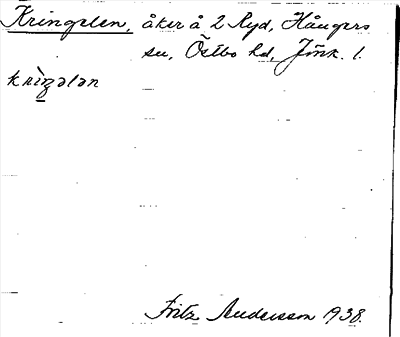 Kringelen, åker å 2 Ryd, Hångers
sn, Östbo hd, Jönk. l.
krìŋələn
Fritz Andersson 1938.